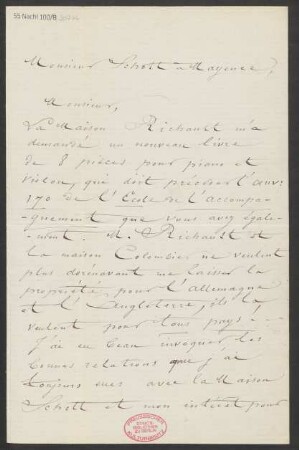 55 Nachl 100/B
Monsieur Schott à Mayence,
Monsieur,
La Maison Richault m'a
demandé un nouveau livre
de 8 pièces pour piano et
violon, qui doit précéder l'œuvr
170 de l'Ecole de l'accompa-
-gnement que vous avez égale-
-ment. M. Richault et
la maison Colombier ne veulent
plus dorénavant me laisser la
propriété pour l'Allemagne
et l'Angleterre, ils la
veulent pour tous pays.
J'ai eu beau invoquer les
bonnes relations que j'ai
toujours eues avec la Maison
Schott et mon intérêt pour